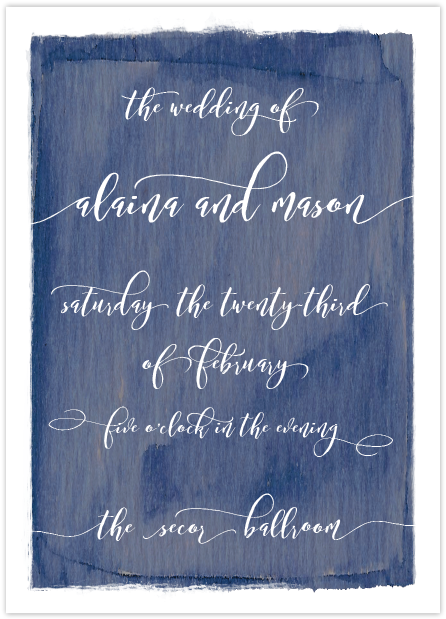 the wedding of
alaina and mason
saturday the twenty-third
of february
five o'clock in the evening
the secor ballroom